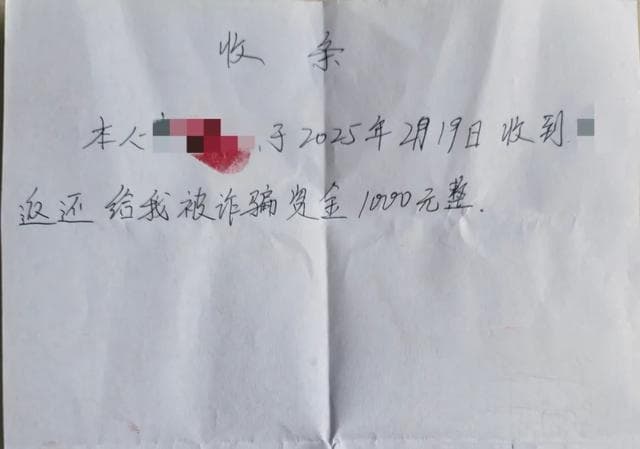 收条
本人 于2025年2月19日收到
返还给我被诈骗资金1000元整.